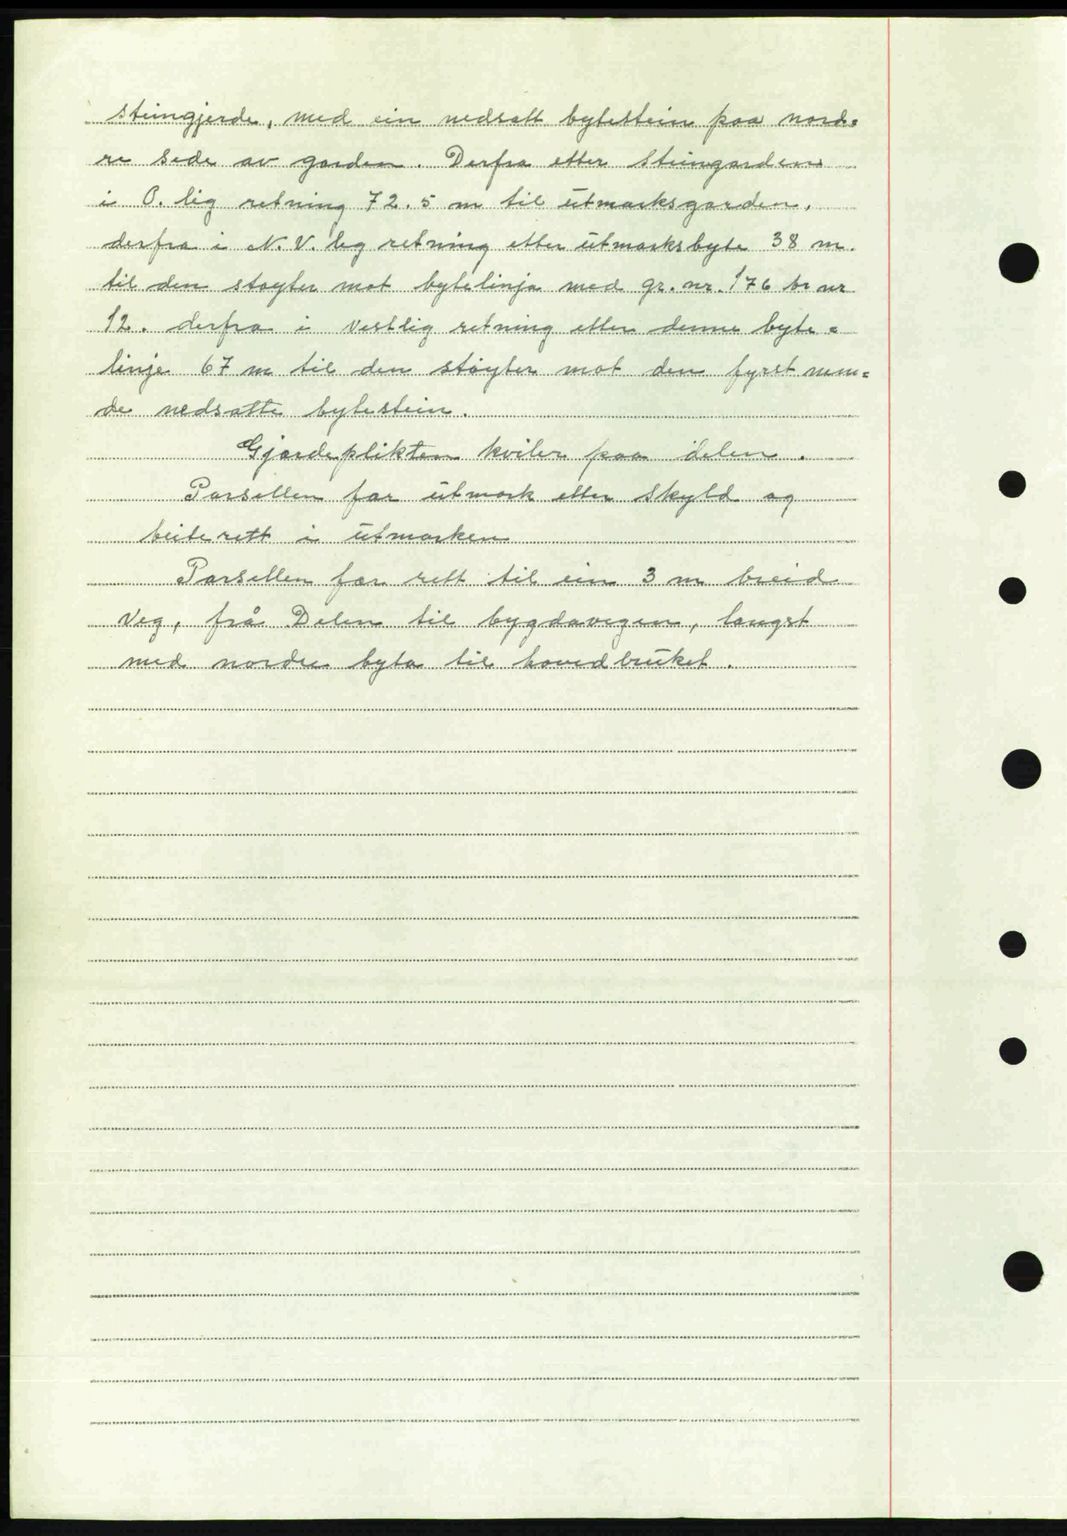 steingjerde, med ein nedsatt bytestein paa nord=
re side av garden. Derfra etter steingarden
i Ø. lig retning 72.5 m til utmarksgarden,
derfra i N.V. leg retning etter utmarksbyte 38 m.
til den støyter mot bytelinja med gr. nr. 176 br nr
12. derfra i vestlig retning etter denne byte=
linje 67 m til den støyter mot den fyrst nem=
de nedsatte bytestein.
Gjerdeplikten kviler paa delen.
Parsellen far utmark etter skyld og
beiterett i utmarken
Parsellen far rett til ein 3 m breid
veg, frå Delen til bygdavegen, langst
med nordre byta til hovedbruket.